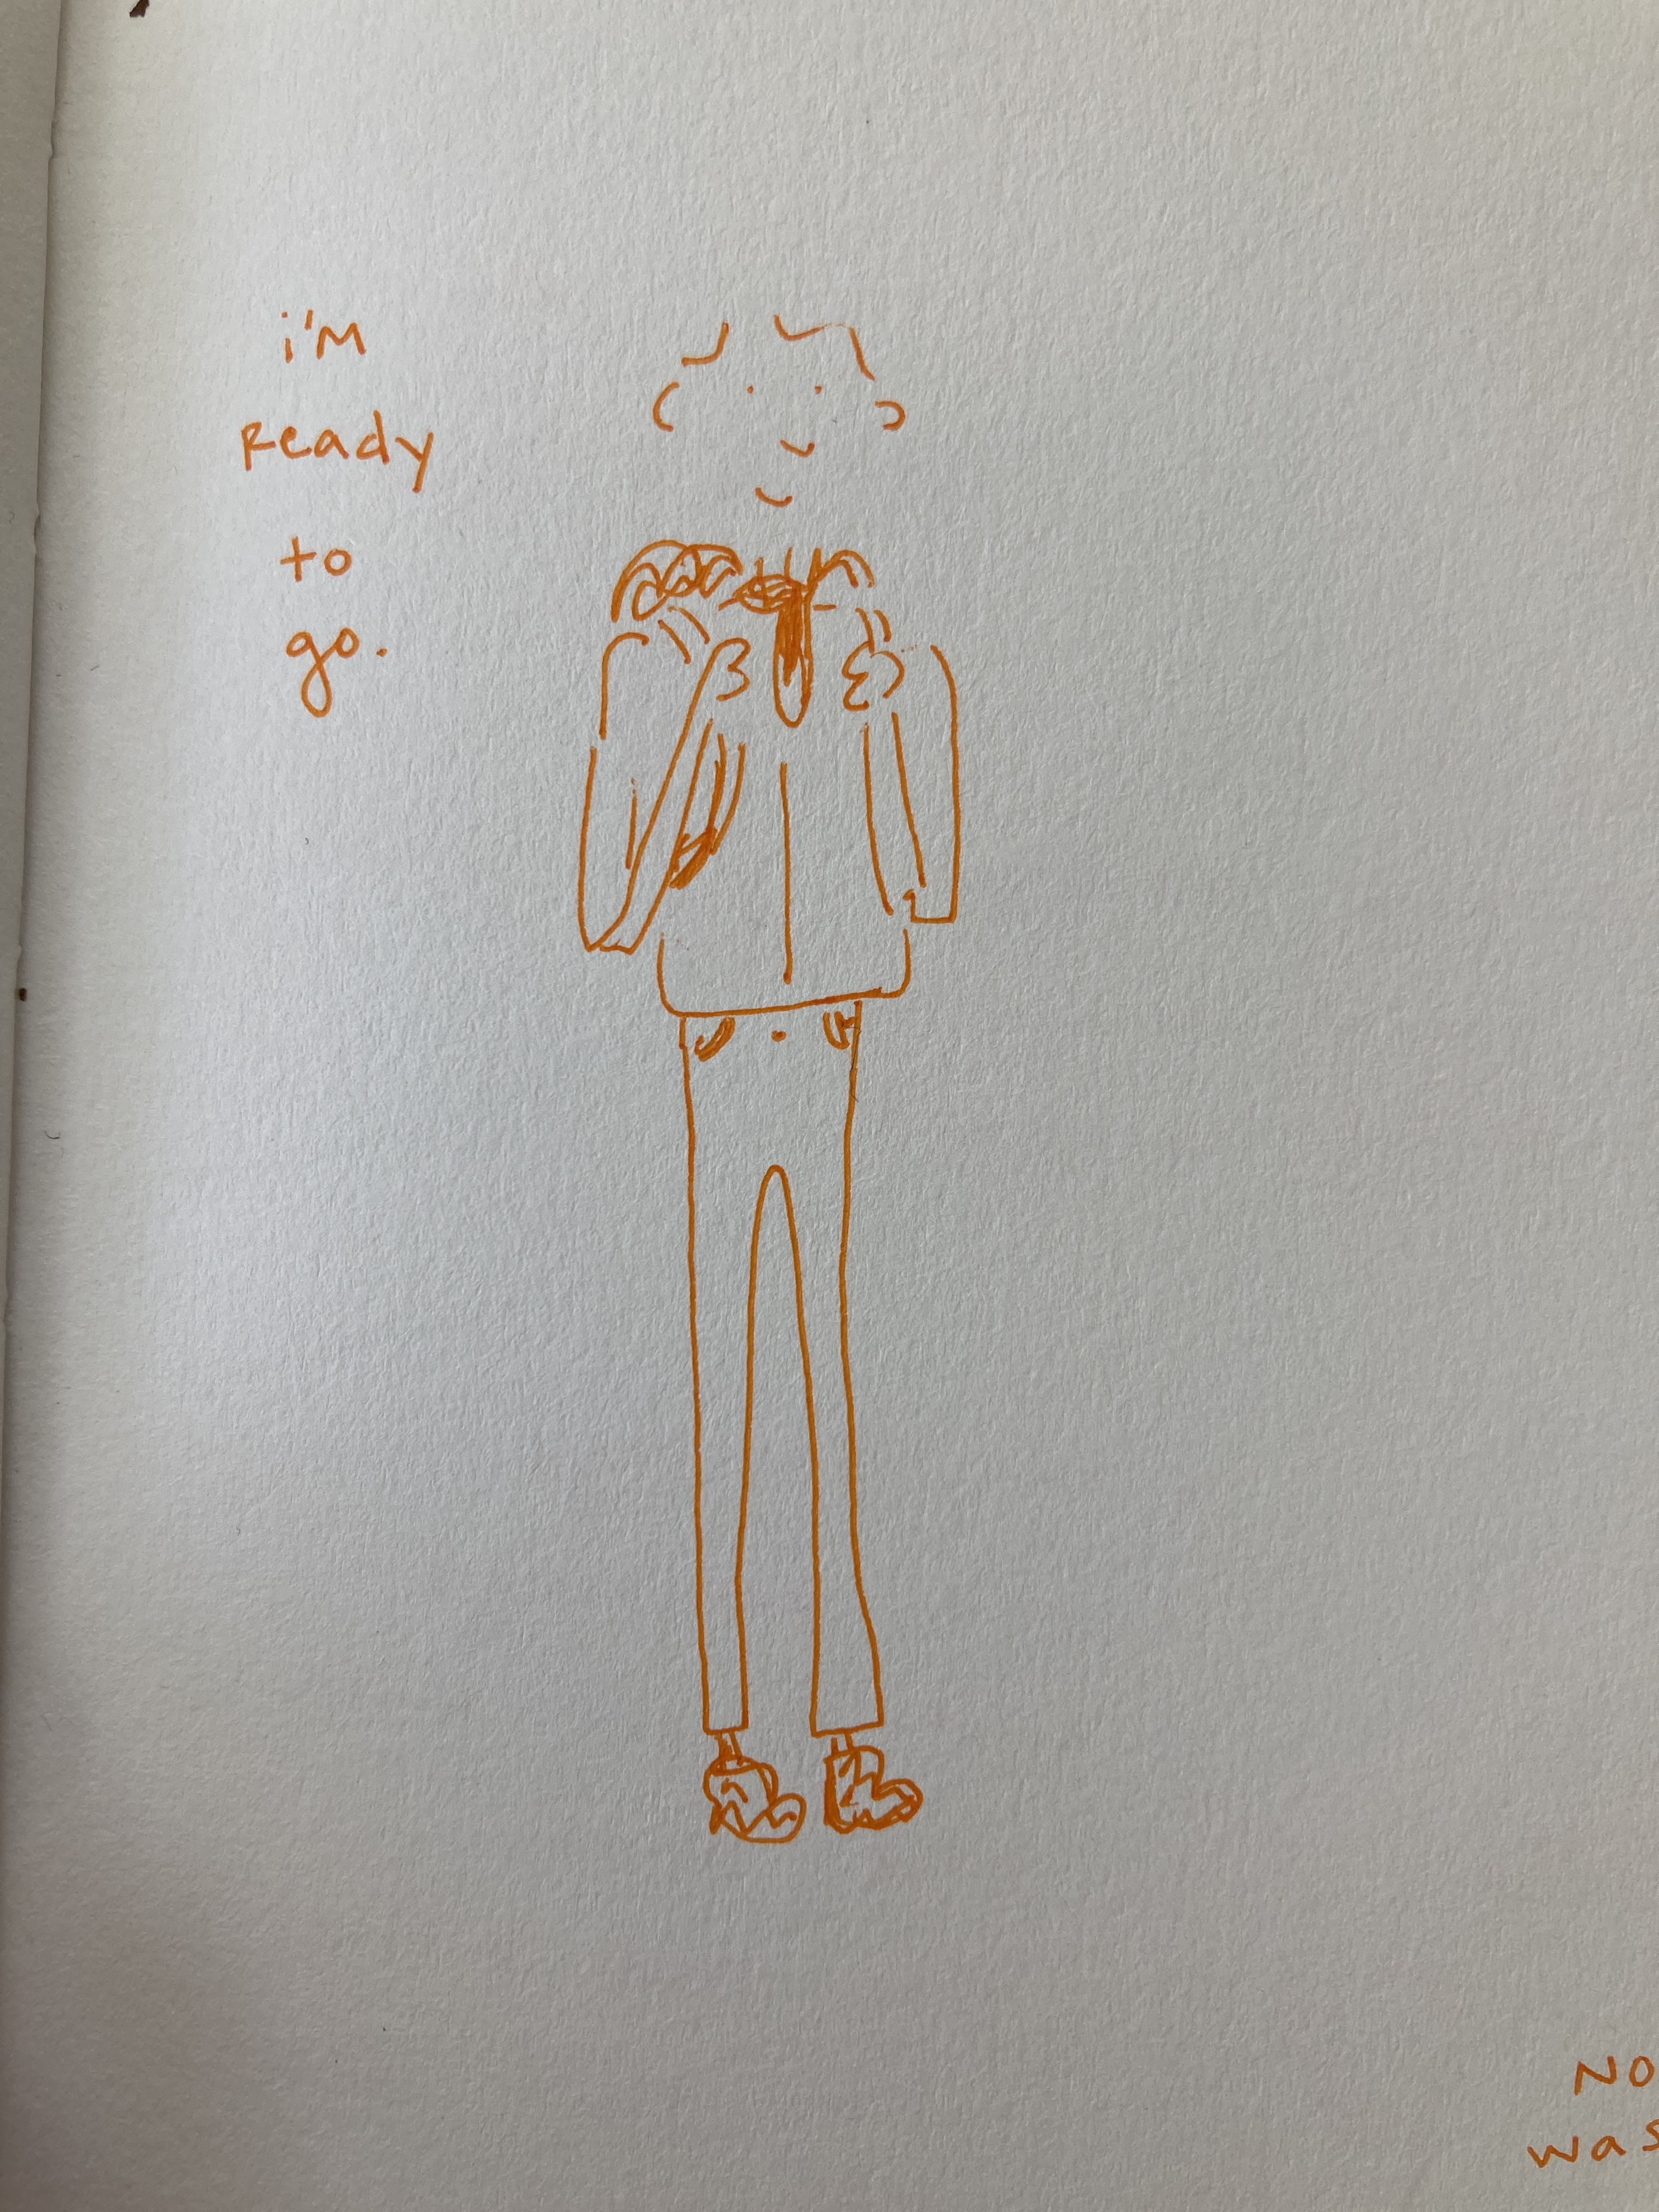 i'm
ready
to
go.
NO
was